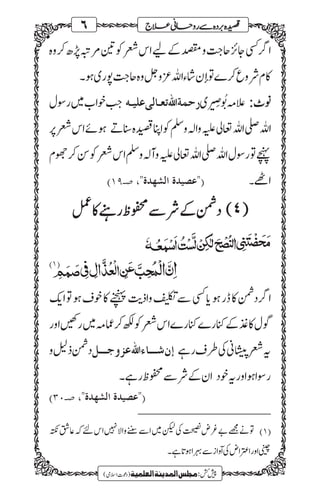 قصیدہ بردہ سے روحانی علاج
٦
اگر کسی جائز حاجت و مقصد کے لیے اس شعر کو تین مرتبہ پڑھ کر وہ
کام شروع کرے تو اِن شاء اللہ عزوجل وہ حاجت پوری ہو۔
نوٹ: علامہ بُوصِیری رحمۃ اللہ تعالٰی علیہ جب خواب میں رسول
اللہ صلی اللہ تعالٰی علیہ والہ وسلم کو اپنا قصیدہ سناتے ہوئے اس شعر پر
پہنچے تو رسول اللہ صلی اللہ تعالٰی علیہ وآلہ وسلم اس شعر کو سن کر جھوم
اٹھے۔ ("عصیدۃ الشہدۃ"، صـ۱۹)
(٤) دشمن کے شر سے محفوظ رہنے کا عمل
مَحَضْتَنِی النُّصْحَ لٰکِنْ لَّسْتُ اَسْمَعُہٗ
اِنَّ الْمُحِبَّ عَنِ الْعُذَّالِ فِیْ صَمَمٖ (۱)
اگر دشمن کا ڈر ہو یا اس سے کسی تکلیف و اذیت پہنچنے کا خوف ہو تو ایک
گول کاغذ کے کنارے کنارے اس شعر کو لکھ کر عمامہ میں رکھیں اور
یہ شعر پیشانی کی طرف رہے اِن شاء اللہ عزوجل دشمن ذلیل و
رسوا ہو اور یہ خود ان کے شر سے محفوظ رہے۔
("عصیدۃ الشہدۃ"، صـ۳۰)
(۱) تو نے مجھے بے غرض نصیحت کی لیکن میں اسے سننے والا نہیں اس لئے کہ عاشق نکتہ
چینی اور اعتراض کی آواز سے بہرا ہوتا ہے۔
پیش کش: مجلس المدینۃ العلمیۃ (دعوت اسلامی)